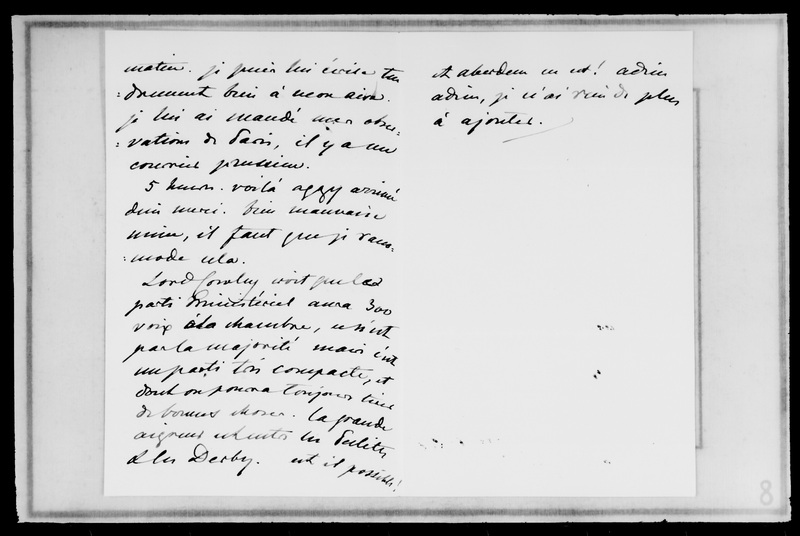 matin. je puis lui écrire tou
:
donc bien à mon aise.
je lui ai mandé mes obser:
:vations de Paris, il y a un
courrier prussien.
5 heures. voilà aggy arrivé
dieu merci. bien mauvaise
mine, il faut que je racco:
:mode cela.
Lord Cowley croit que le
parti ministériel aura 300
voix à la chambre, ce n'est
pas la majorité mais c'est
un parti très compacte, et
dont on pourra toujours tirer
de bonnes choses. la grande
aigreur est entre les Peelites
& les Derby. est il possible!
et aberdeen en est! adieu
adieu, je n'ai rien de plus
à ajouter.
8